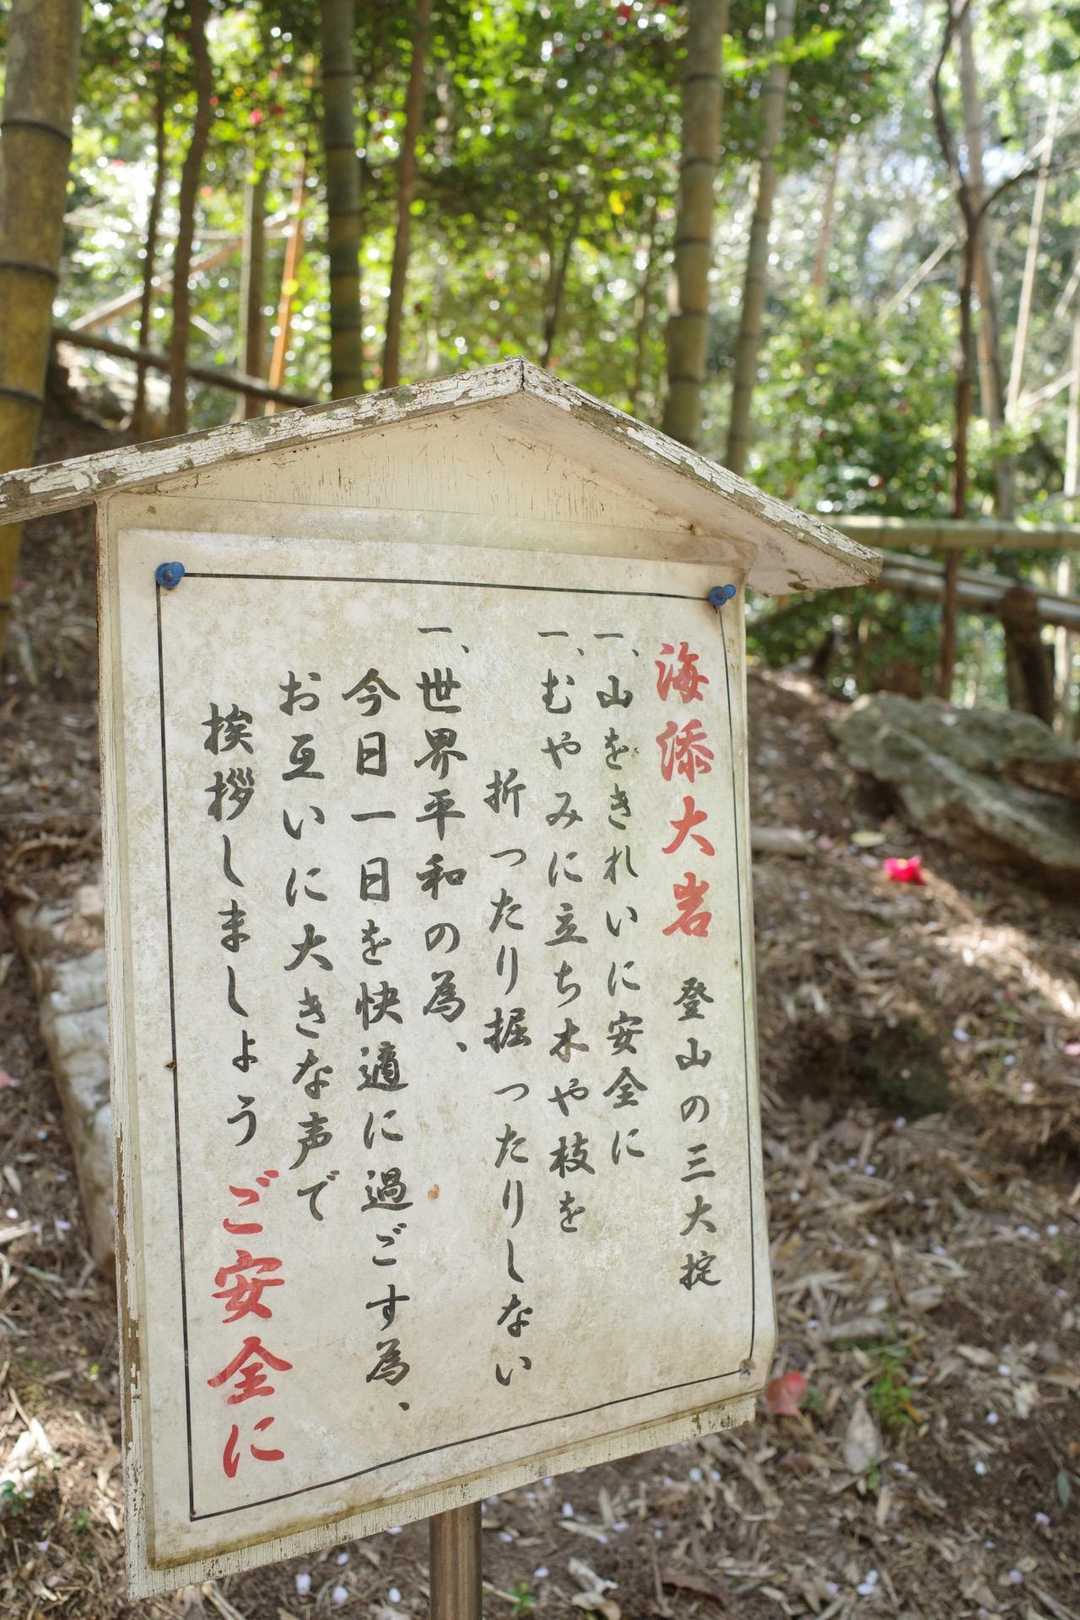 海添大岩 登山の三大掟
一、山をきれいに安全に
一、むやみに立ち木や枝を
折ったり掘ったりしない
一、世界平和の為、
今日一日を快適に過ごす為、
お互いに大きな声で
挨拶しましょう ご安全に